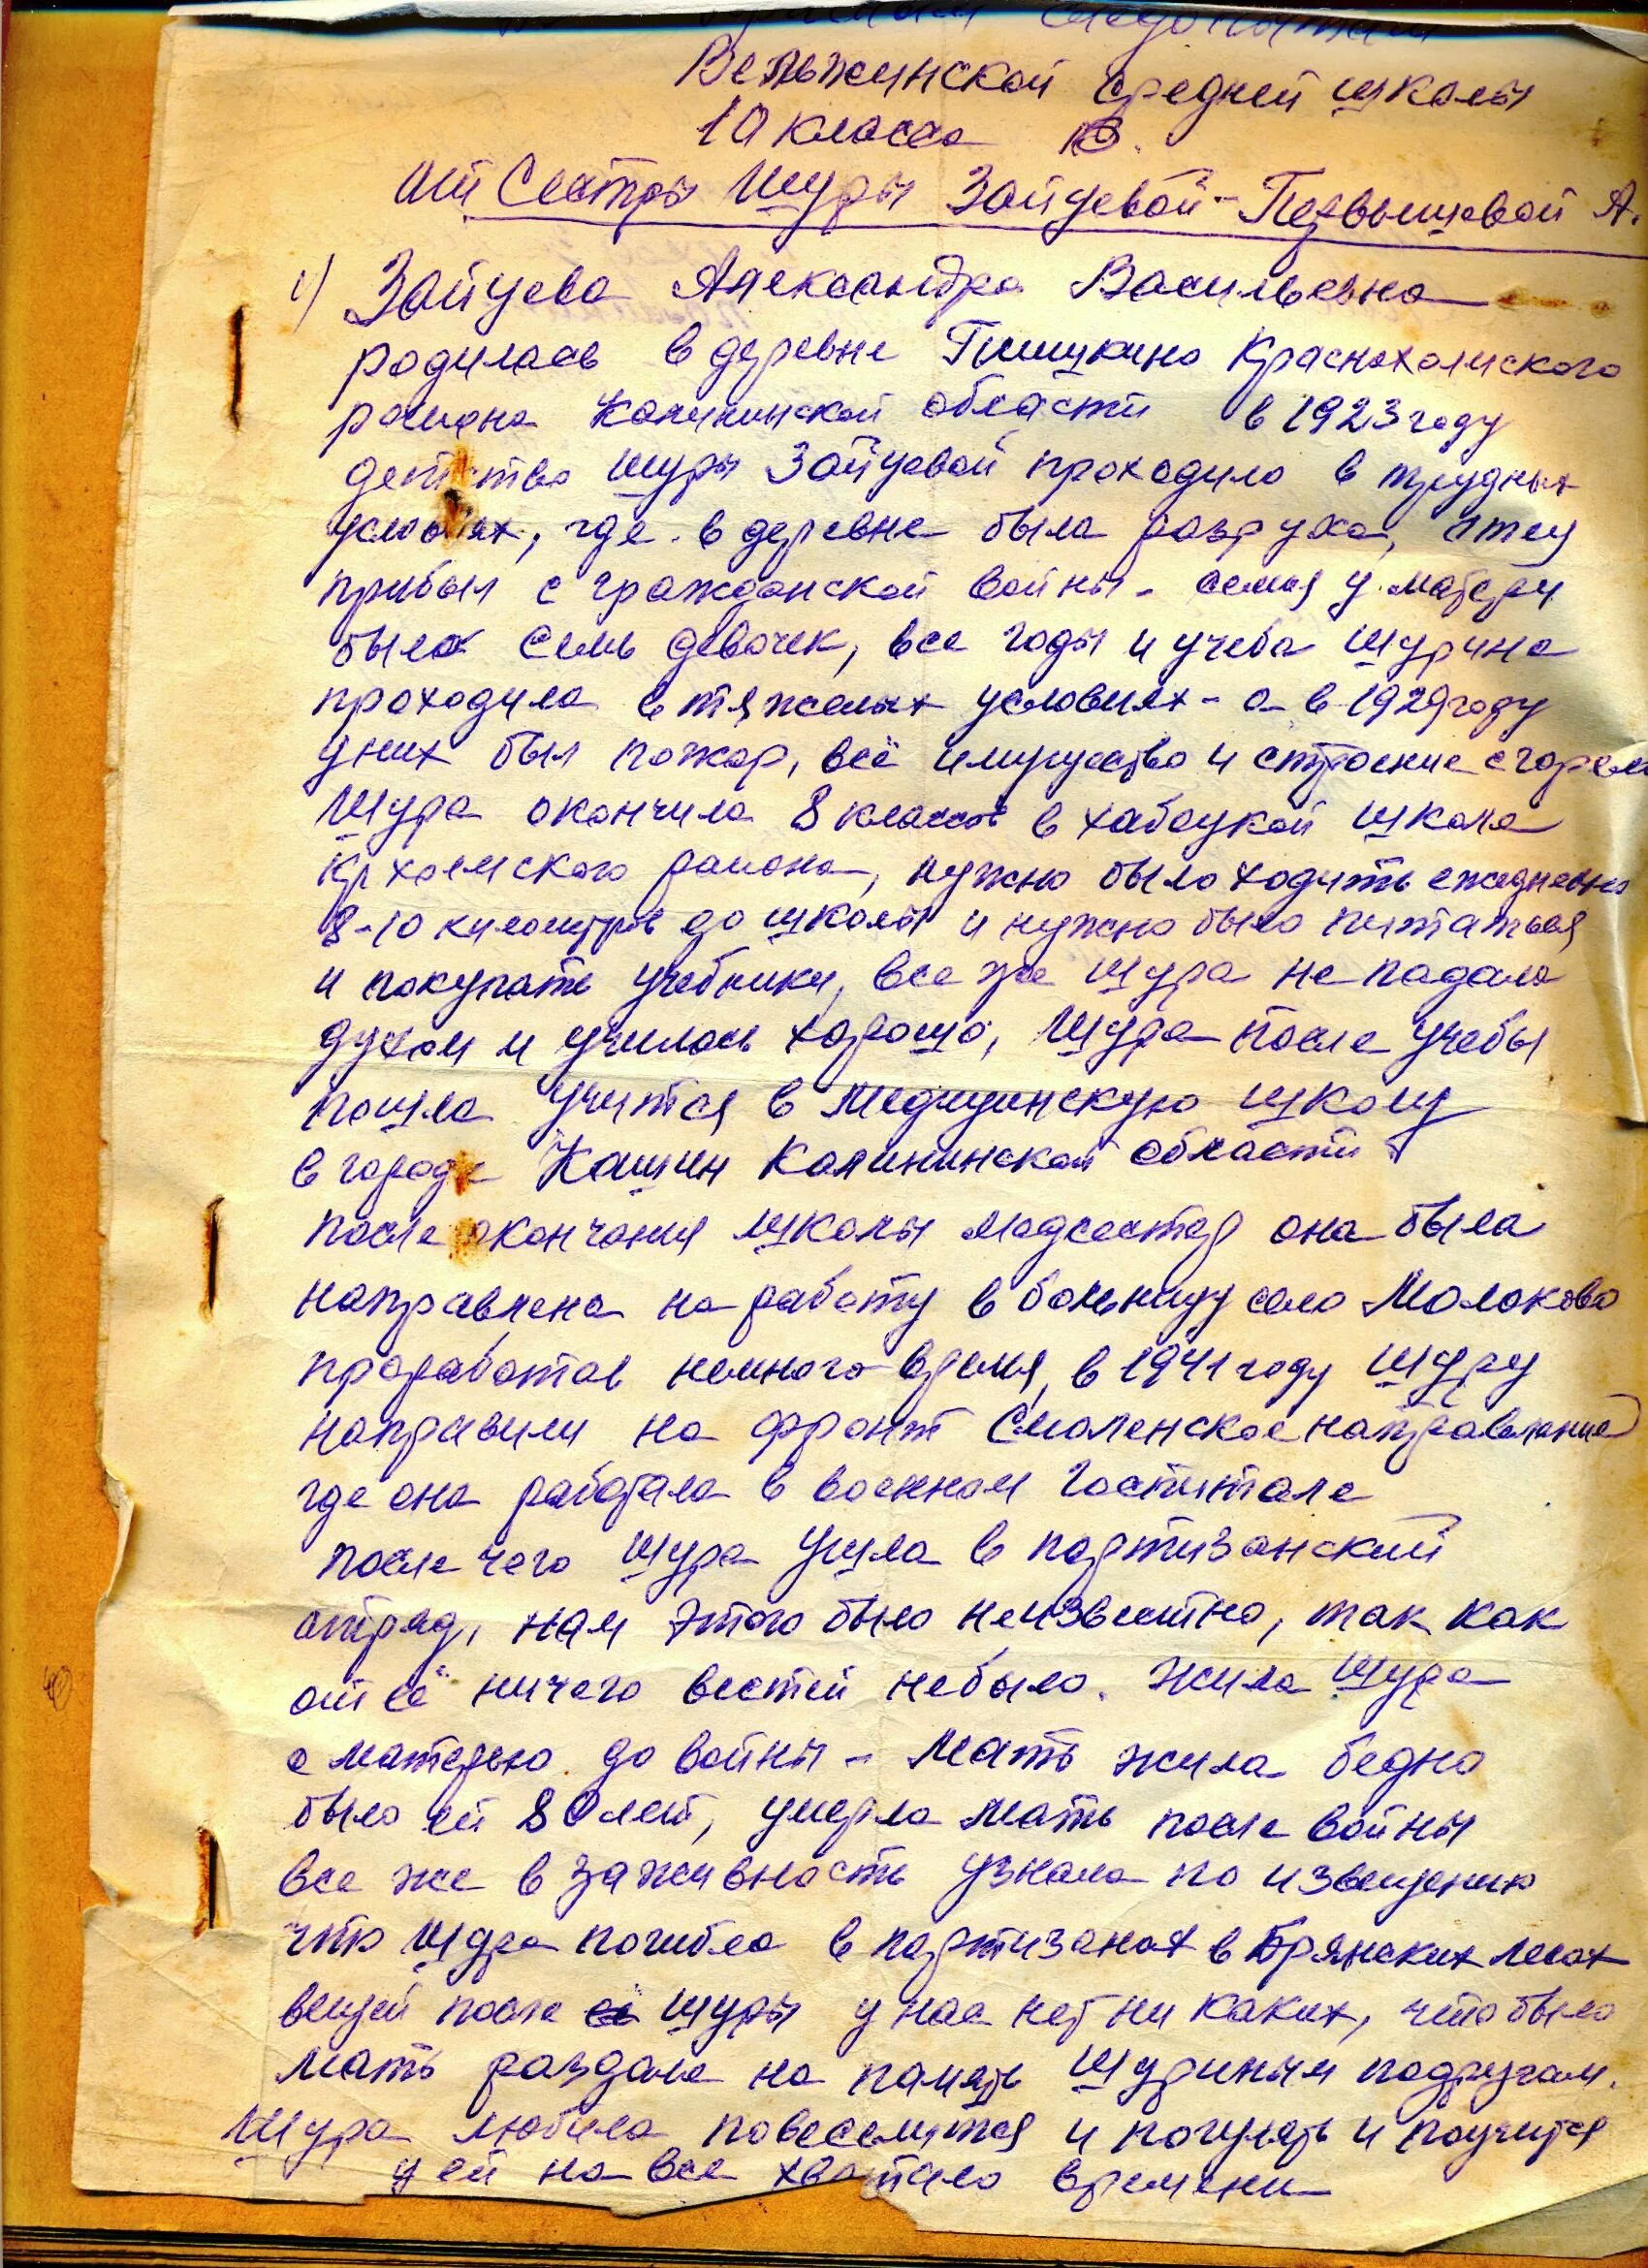 следопытам
Вельжинской средней школы
10 класса
от Сестры Шуры Зайцевой-Первышевой А.
1) Зайцева Александра Васильевна
родилась в деревне Краснохолмского
района Калининской области в 1923 году
детство Шуры Зайцевой проходило в трудных
условиях, где в деревне была разруха, отец
прибыл с гражданской войны - семья у матери
было семь девочек, все годы и учеба Шурина
проходила в тяжелых условиях - а в 1929 году
у них был пожар, всё имущество и строение сгорело
Шура окончила 8 классов в хабоцкой школе
Кр холмского района, нужно было ходить ежедневно
8-10 километров до школы и нужно было питаться
и покупать учебники, все же Шура не падала
духом и училась хорошо, Шура после учебы
пошла учится в медицинскую школу
в городе Кашин Калининской области
после окончания школы медсестер она была
направлена на работу в больницу село Молоково
проработав немного время, в 1941 году Шуру
направили на фронт Смоленское направление
где она работала в военном госпитале
после чего Шура ушла в партизанский
отряд, нам этого было неизвестно, так как
от её ничего вестей небыло. Жила Шура
с матерью до войны - мать жила бедно
было ей 80 лет, умерла мать после войны
все же в заживность узнала по извещению
что Шура погибла в партизанах в Брянских лесах
вещей после её Шуры у нас нет ни каких, что было
мать раздала на память Шуриным подругам.
Шура любила повеселится и погулять и поучится
у ей на все хватило времени